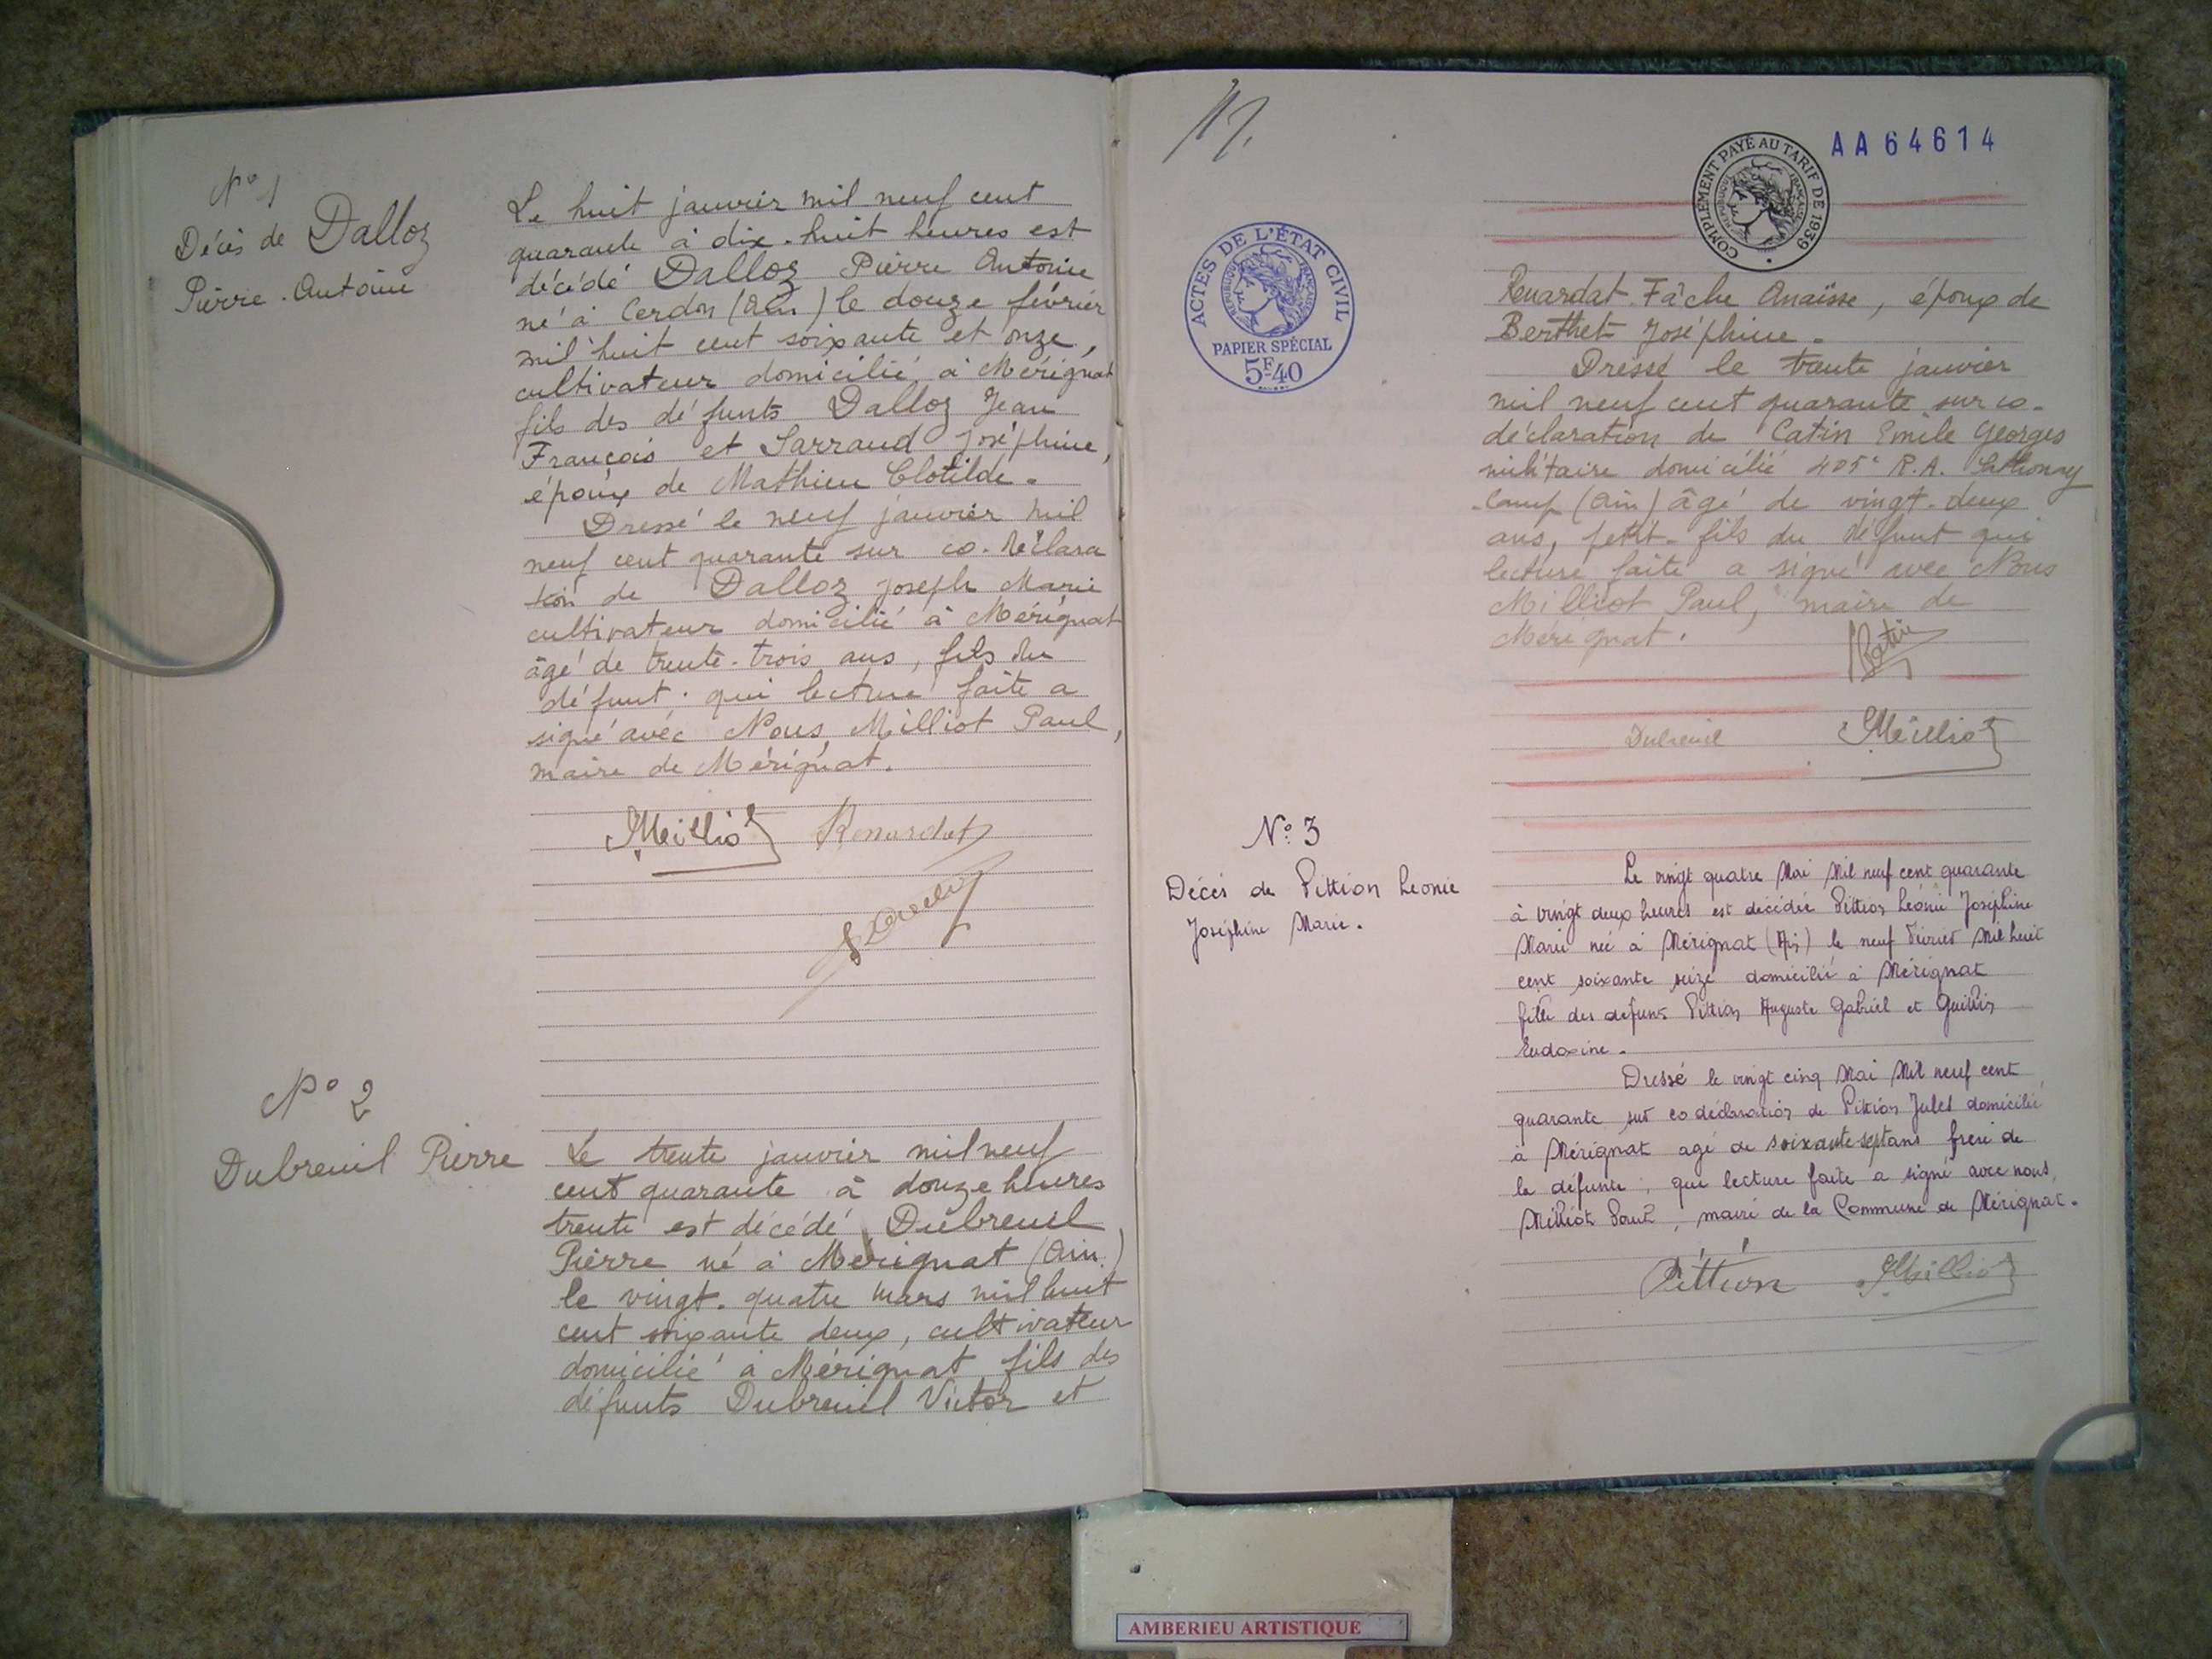 N° 1
Décès de Dalloz
Pierre-Antoine
Le huit janvier mil neuf cent
quarante à dix-huit heures est
décédé Dalloz Pierre Antoine
né à Cerdon (Ain) le douze février
mil huit cent soixante et onze,
cultivateur domicilié à Mérignat
fils des défunts Dalloz Jean
François et Sarraud Joséphine,
époux de Mathieu Clotilde.
Dressé le neuf janvier mil
neuf cent quarante sur co-déclara
tion de Dalloz Joseph Marie
cultivateur domicilié à Mérignat
âgé de trente-trois ans, fils du
défunt; qui lecture faite a
signé avec Nous, Milliot Paul,
maire de Mérignat.
Milliot Renardat
N° 2
Dubreuil Pierre
Le trente janvier mil neuf
cent quarante à douze heures
trente est décédé Dubreuil
Pierre né à Mérignat (Ain)
le vingt-quatre mars mil huit
cent soixante deux, cultivateur
domicilié à Mérignat fils des
défunts Dubreuil Victor et
COMPLÉMENT PAYÉ AU TARIF DE 1939
RÉPUBLIQUE FRANÇAISE
AA64614
ACTES DE L'ÉTAT CIVIL
RÉPUBLIQUE FRANÇAISE
PAPIER SPÉCIAL
5F40
Renardat-Fâche Anaïsse, époux de
Berthet Joséphine.
Dressé le trente janvier
mil neuf cent quarante sur co-
déclaration de Catin Emile Georges
militaire domicilié 405e R.A. Sathonay
-Camp (Ain) âgé de vingt-deux
ans, petit-fils du défunt qui
lecture faite a signé avec Nous
Milliot Paul, maire de
Mérignat.
Catin
Dubreuil Milliot
N° 3
Décès de Pittion Léonie
Joséphine Marie.
Le vingt quatre Mai Mil neuf cent quarante
à vingt deux heures est décédée Pittion Léonie Joséphine
Marie née à Mérignat (Ain) le neuf Février Mil huit
cent soixante seize domicilié à Mérignat
fille des défunts Pittion Auguste Gabriel et
Eudoxine.
Dressé le vingt cinq Mai Mil neuf cent
quarante sur co déclaration de Pittion Jules domicilié
à Mérignat agé de soixante-sept ans frère de
la défunte; qui lecture faite a signé avec nous,
Milliot Paul, maire de la Commune de Mérignat.
Pittion Milliot
AMBERIEU ARTISTIQUE